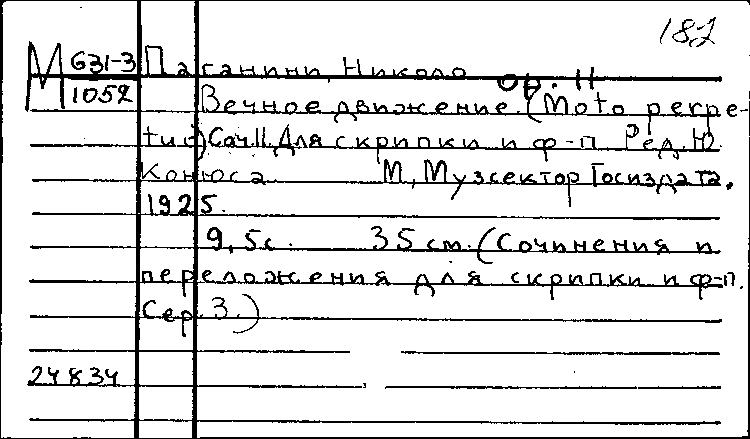 182
М 631-3 Паганини, Николо
1052 op. 11
Вечное движение. (Moto perpe-
tuo) Соч. 11. Для скрипки и ф-п. Ред. Ю.
Конюса. М., Музсектор Госиздата,
1925.
9,5 с. 35 см. (Сочинения и
переложения для скрипки и ф-п.
Сер. 3.)
24834